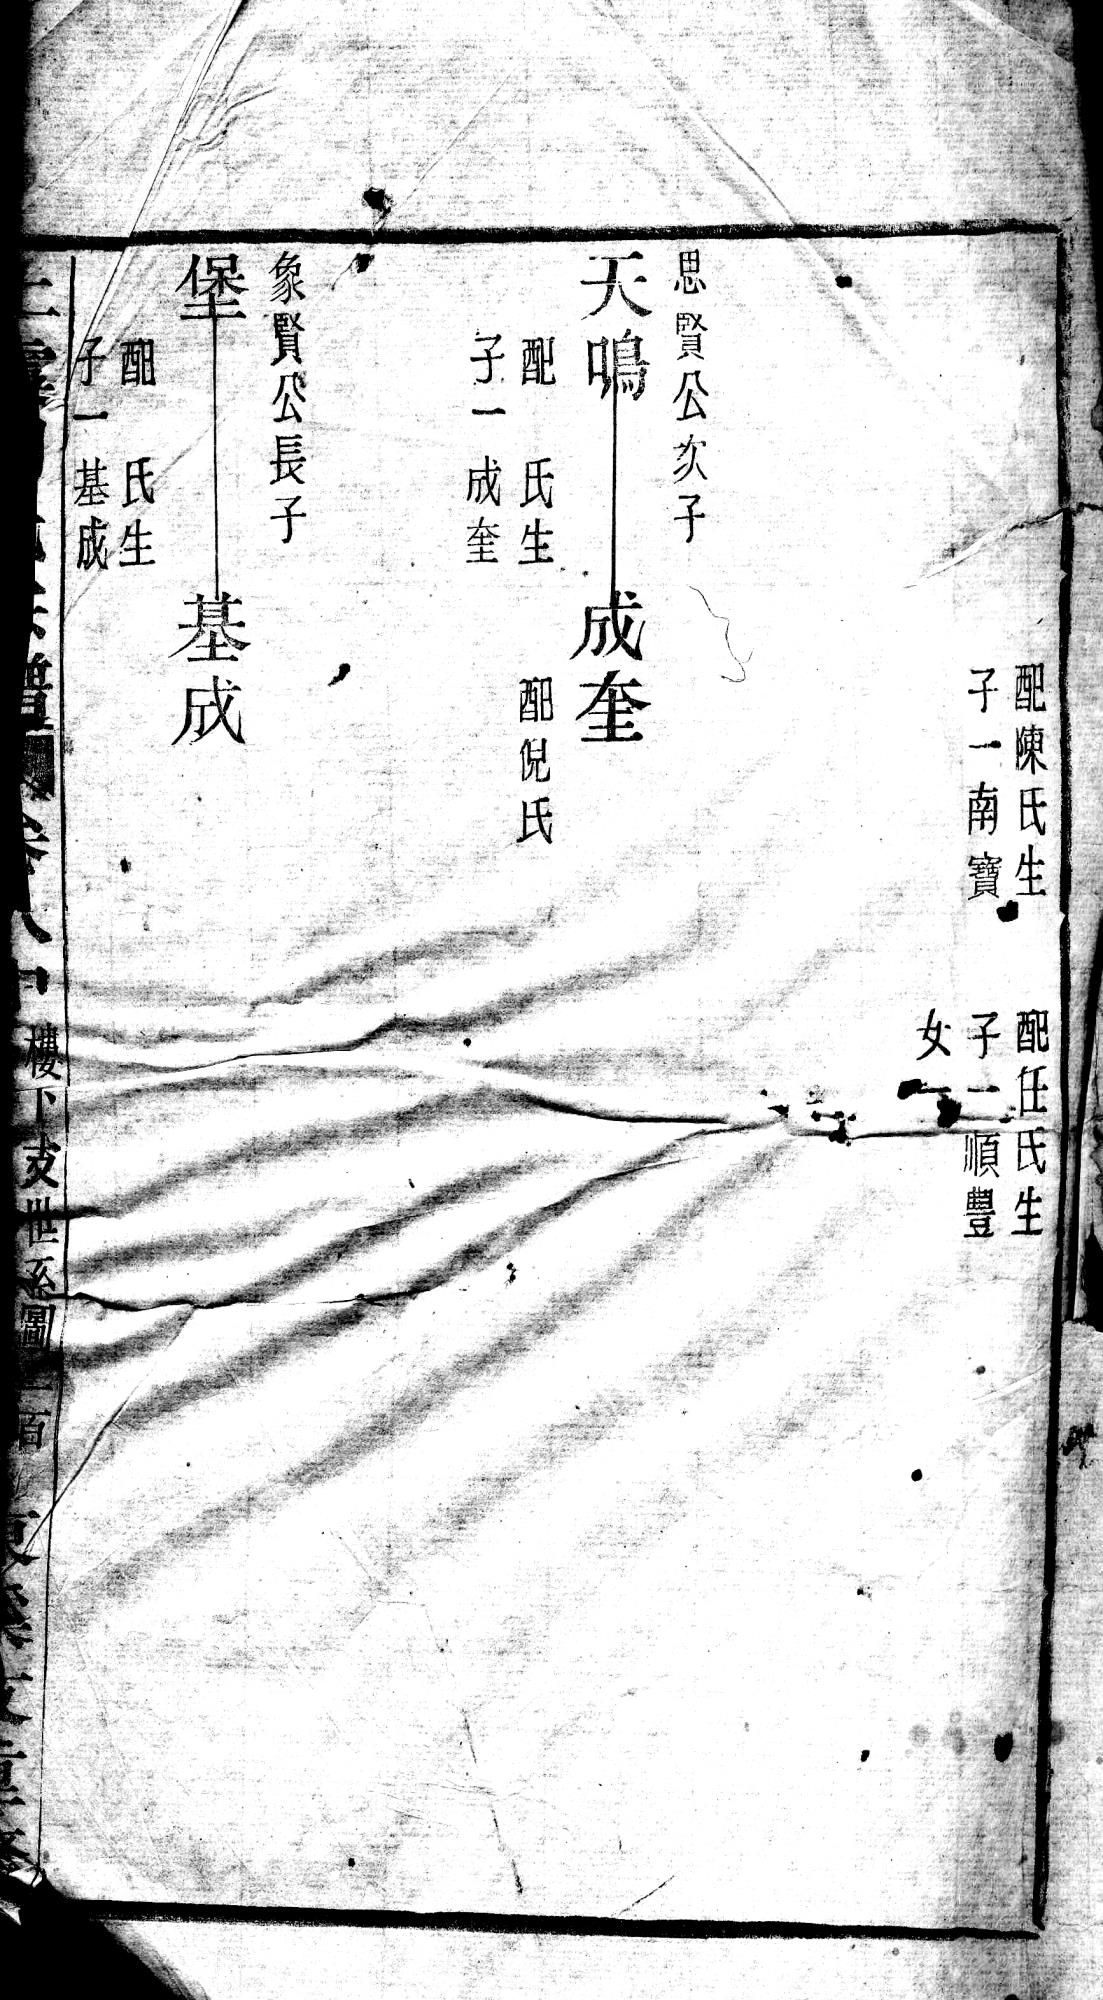 配陳氏生
子一南寶
配任氏生
子一順豐
女一
思賢公次子
天鳴
配 氏生
子一成奎
成奎
配倪氏
象賢公長子
垡
配 氏生
子一基成
基成
樓下支世系圖